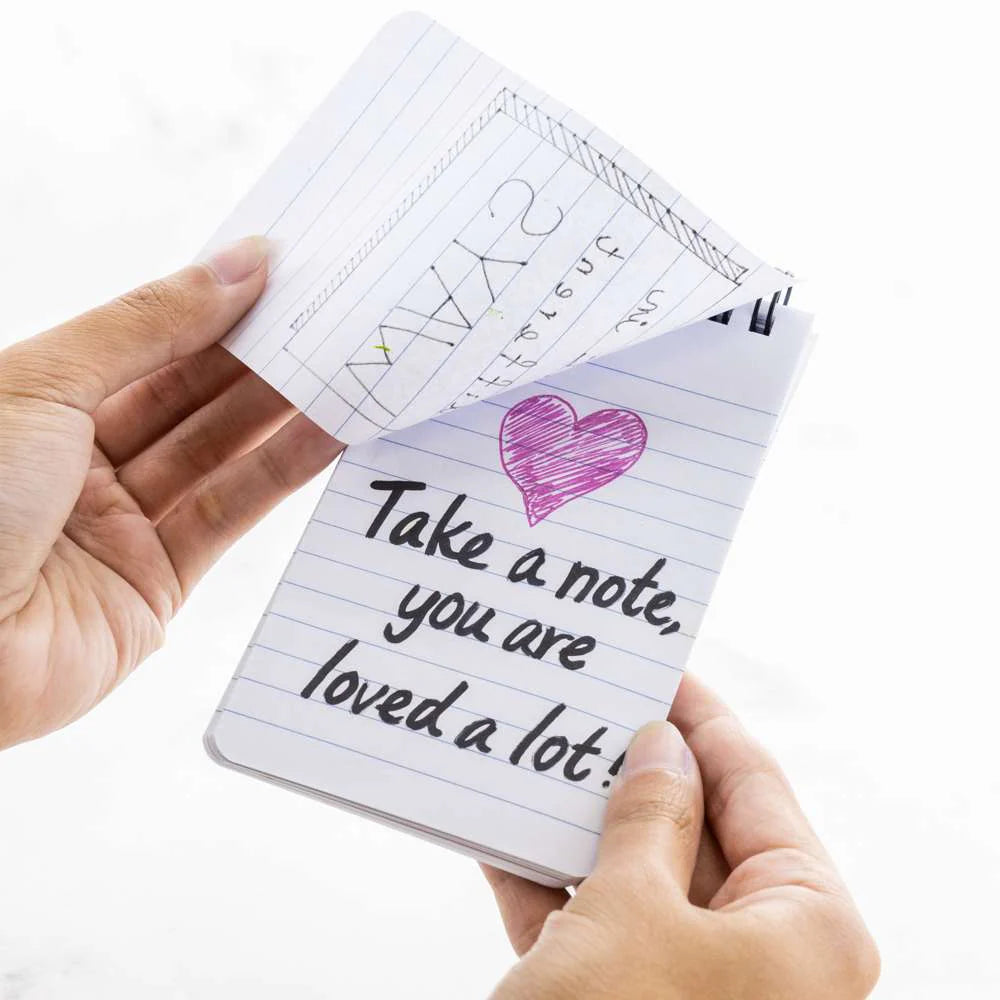 Take a note,
you are
loved a lot!